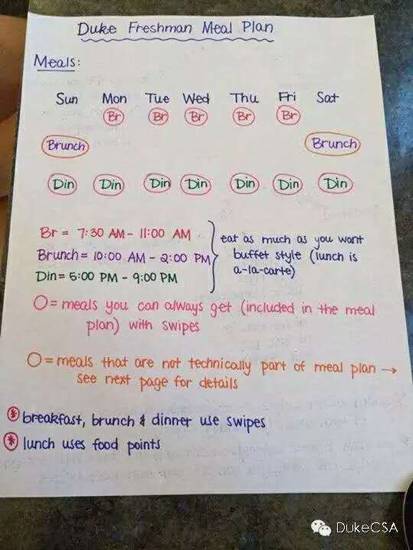 Duke Freshman Meal Plan
Meals:
Sun Mon Tue Wed Thu Fri Sat
Br Br Br Br Br
Brunch Brunch
Din Din Din Din Din Din Din
Br = 7:30 AM - 11:00 AM
Brunch = 10:00 AM - 2:00 PM
Din = 5:00 PM - 9:00 PM
eat as much as you want
buffet style (lunch is
a-la-carte)
O = meals you can always get (included in the meal
plan) with swipes
O = meals that are not technically part of meal plan →
see next page for details
* breakfast, brunch & dinner use swipes
* lunch uses food points
DukeCSA